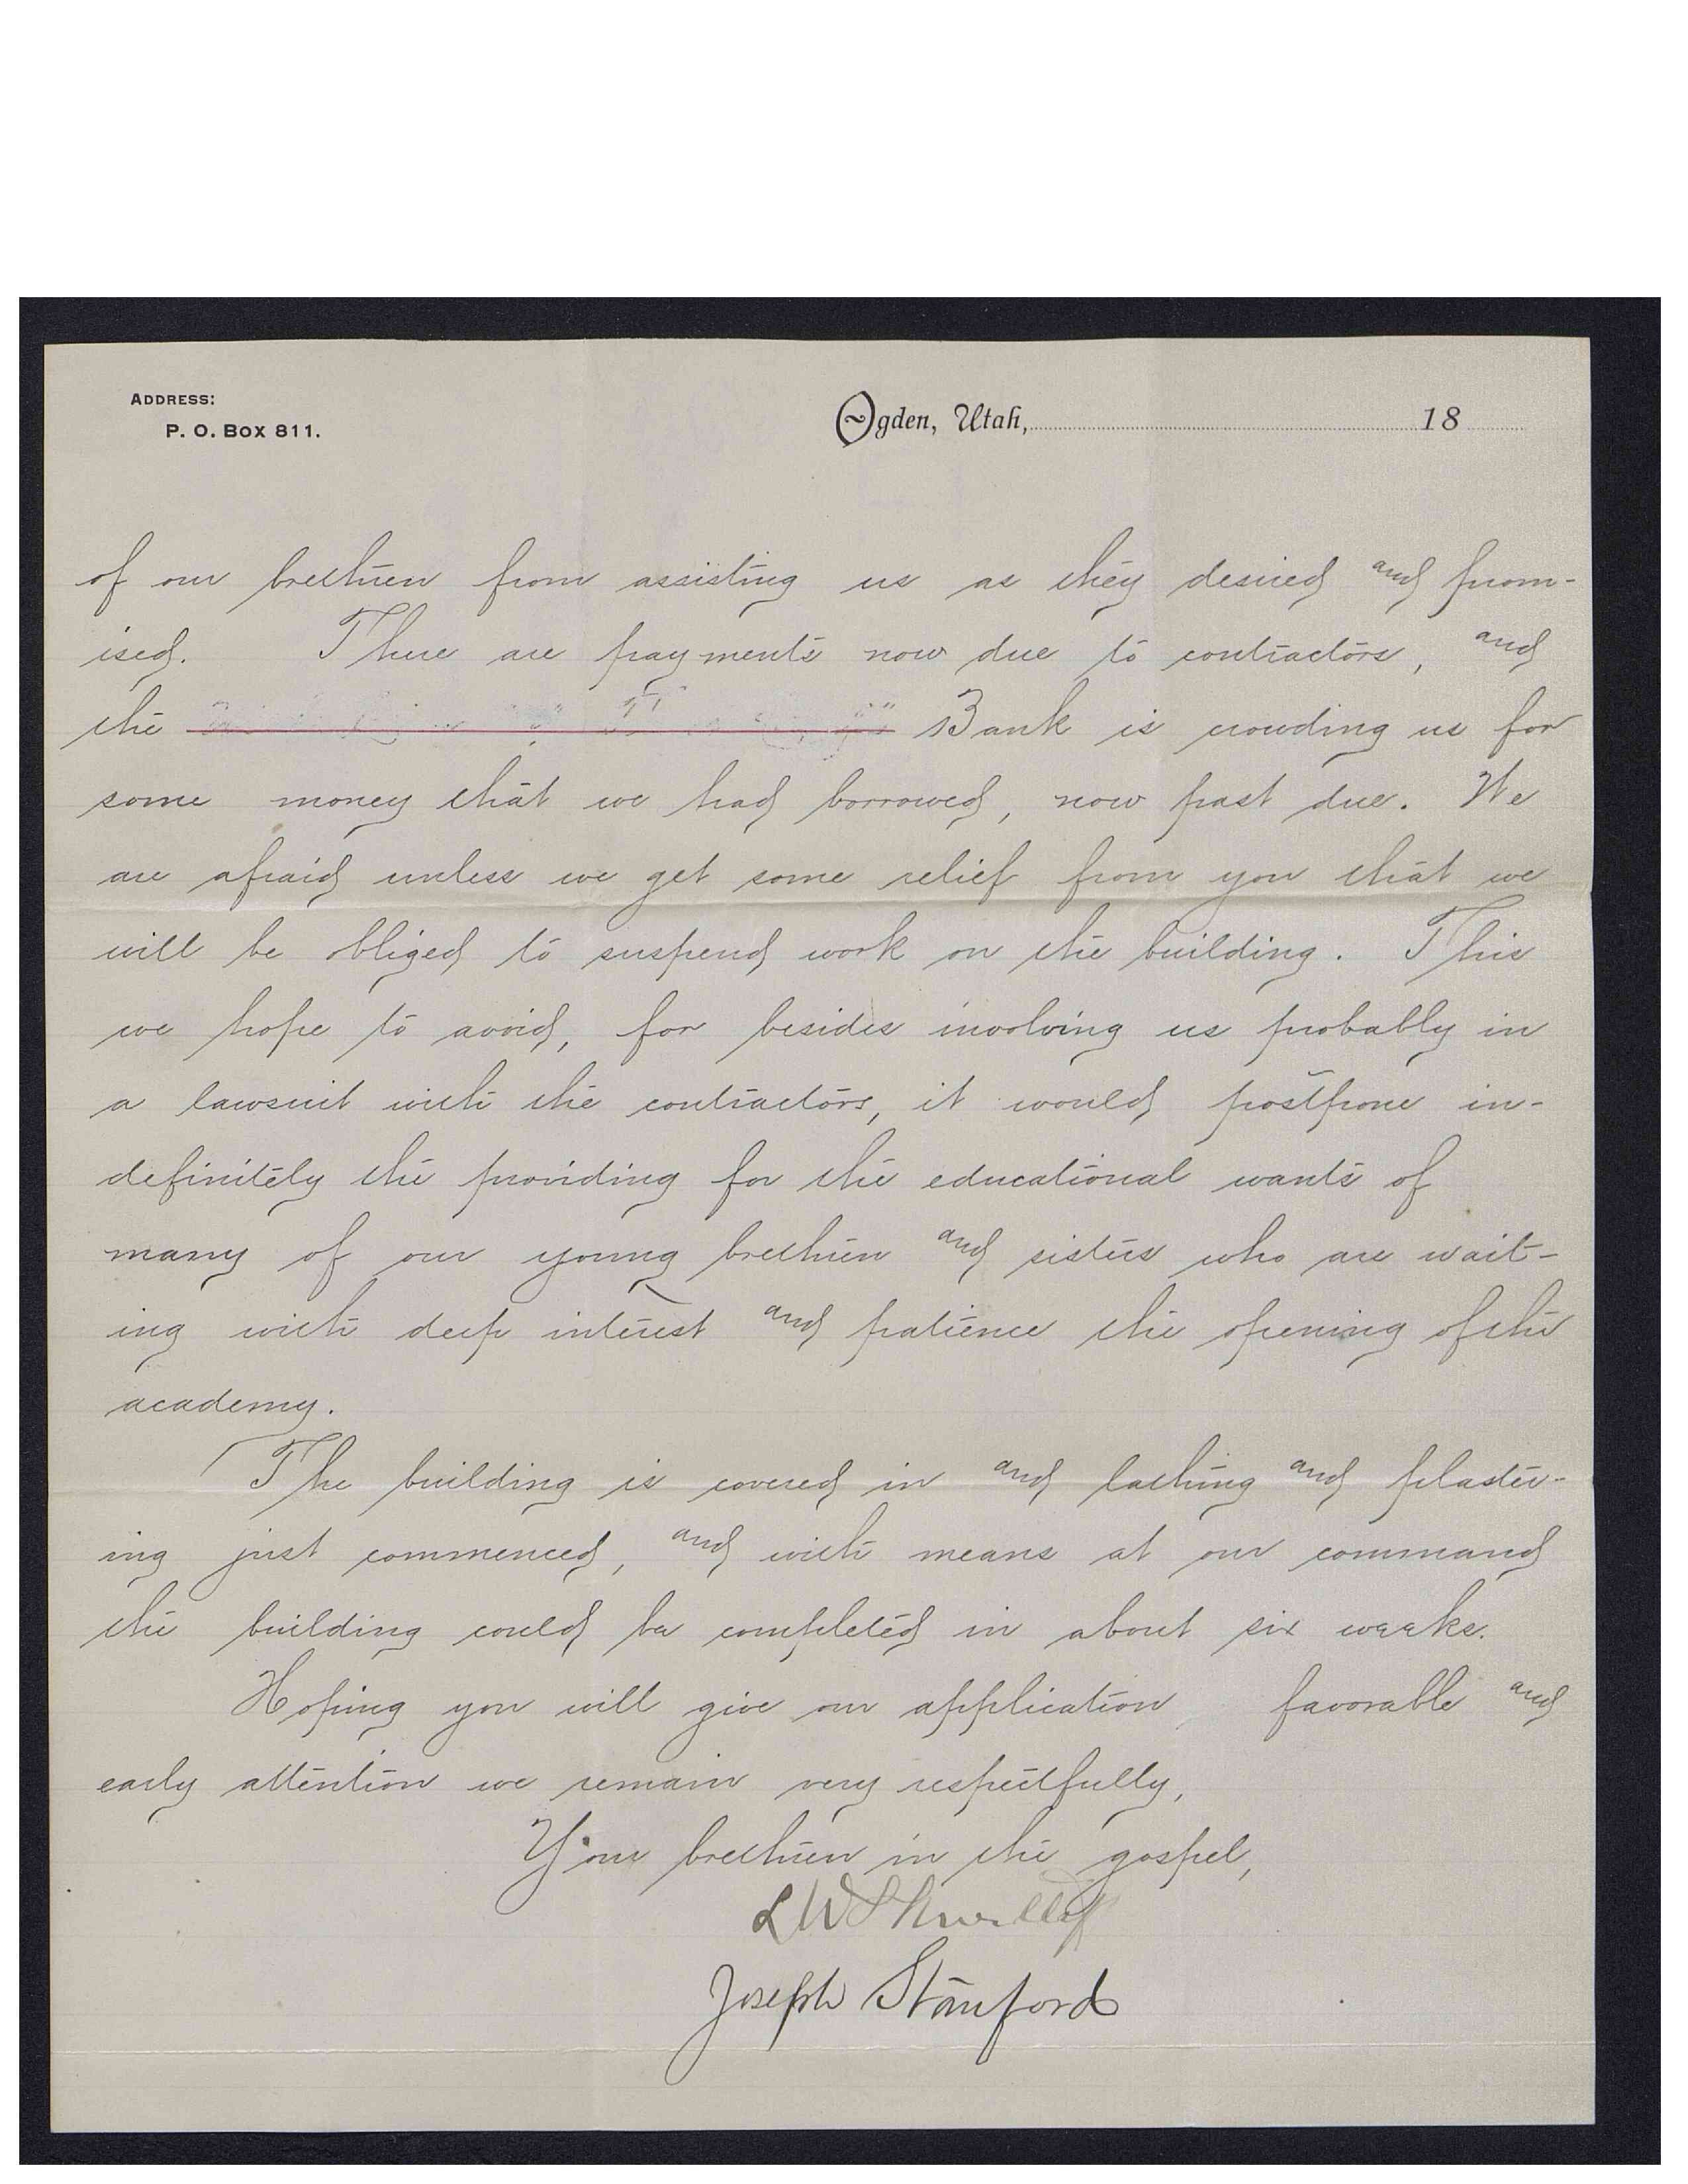 ADDRESS:
P. O. BOX 811.
Ogden, Utah, 18
of our brethren from assisting us as they desired and prom-
ised. There are payments now due to contractors, and
the Bank is crowding us for
some money that we had borrowed, now past due. We
are afraid unless we get some relief from you that we
will be obliged to suspend work on the building. This
we hope to avoid, for besides involving us probably in
a lawsuit with the contractors, it would postpone in-
definitely the providing for the educational wants of
many of our young brethren and sisters who are wait-
ing with deep interest and patience the opening of the
academy.
The building is covered in and lathing and plaster-
ing just commenced, and with means at our command
the building could be completed in about six weeks.
Hoping you will give our application favorable and
early attention we remain very respectfully,
Your brethren in the gospel,
L W Shurtliff
Joseph Stanford